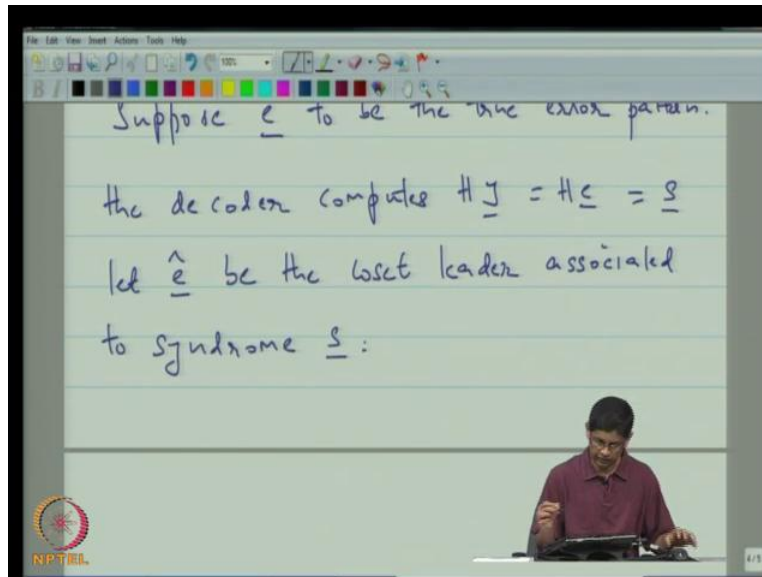 File Edit View Insert Actions Tools Help
100%
B I
Suppose e to be the true error pattern.
the decoder computes H y = H e = s
let ê be the coset leader associated
to syndrome s :
NPTEL